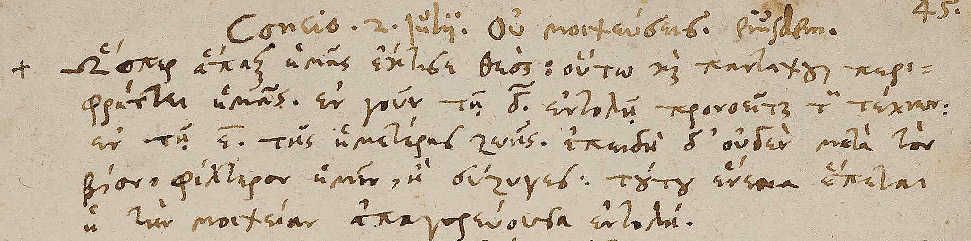 45.
Concio. 2. Julij. Οὐ μοιχεύσεις. Eiusdem.
+ Ὥσπερ ἅπαξ ἡμᾶς ἔκτισε θεός: οὕτω καὶ πανταχοῦ περι=
φράττει ἡμᾶς. ἐν γοῦν τῇ δ. ἐντολῇ προνοεῖται τῶν τέκνων:
ἐν τῇ ε. τῆς ἡμετέρας ζωῆς. ἐπειδὴ δ' οὐδὲν μετὰ τὸν
βίον φίλτερον ἡμῖν, ἢ σύζυγες: τούτου ἕνεκα ἕπεται
ἡ τὴν μοιχείαν ἀπαγορεύουσα ἐντολή.